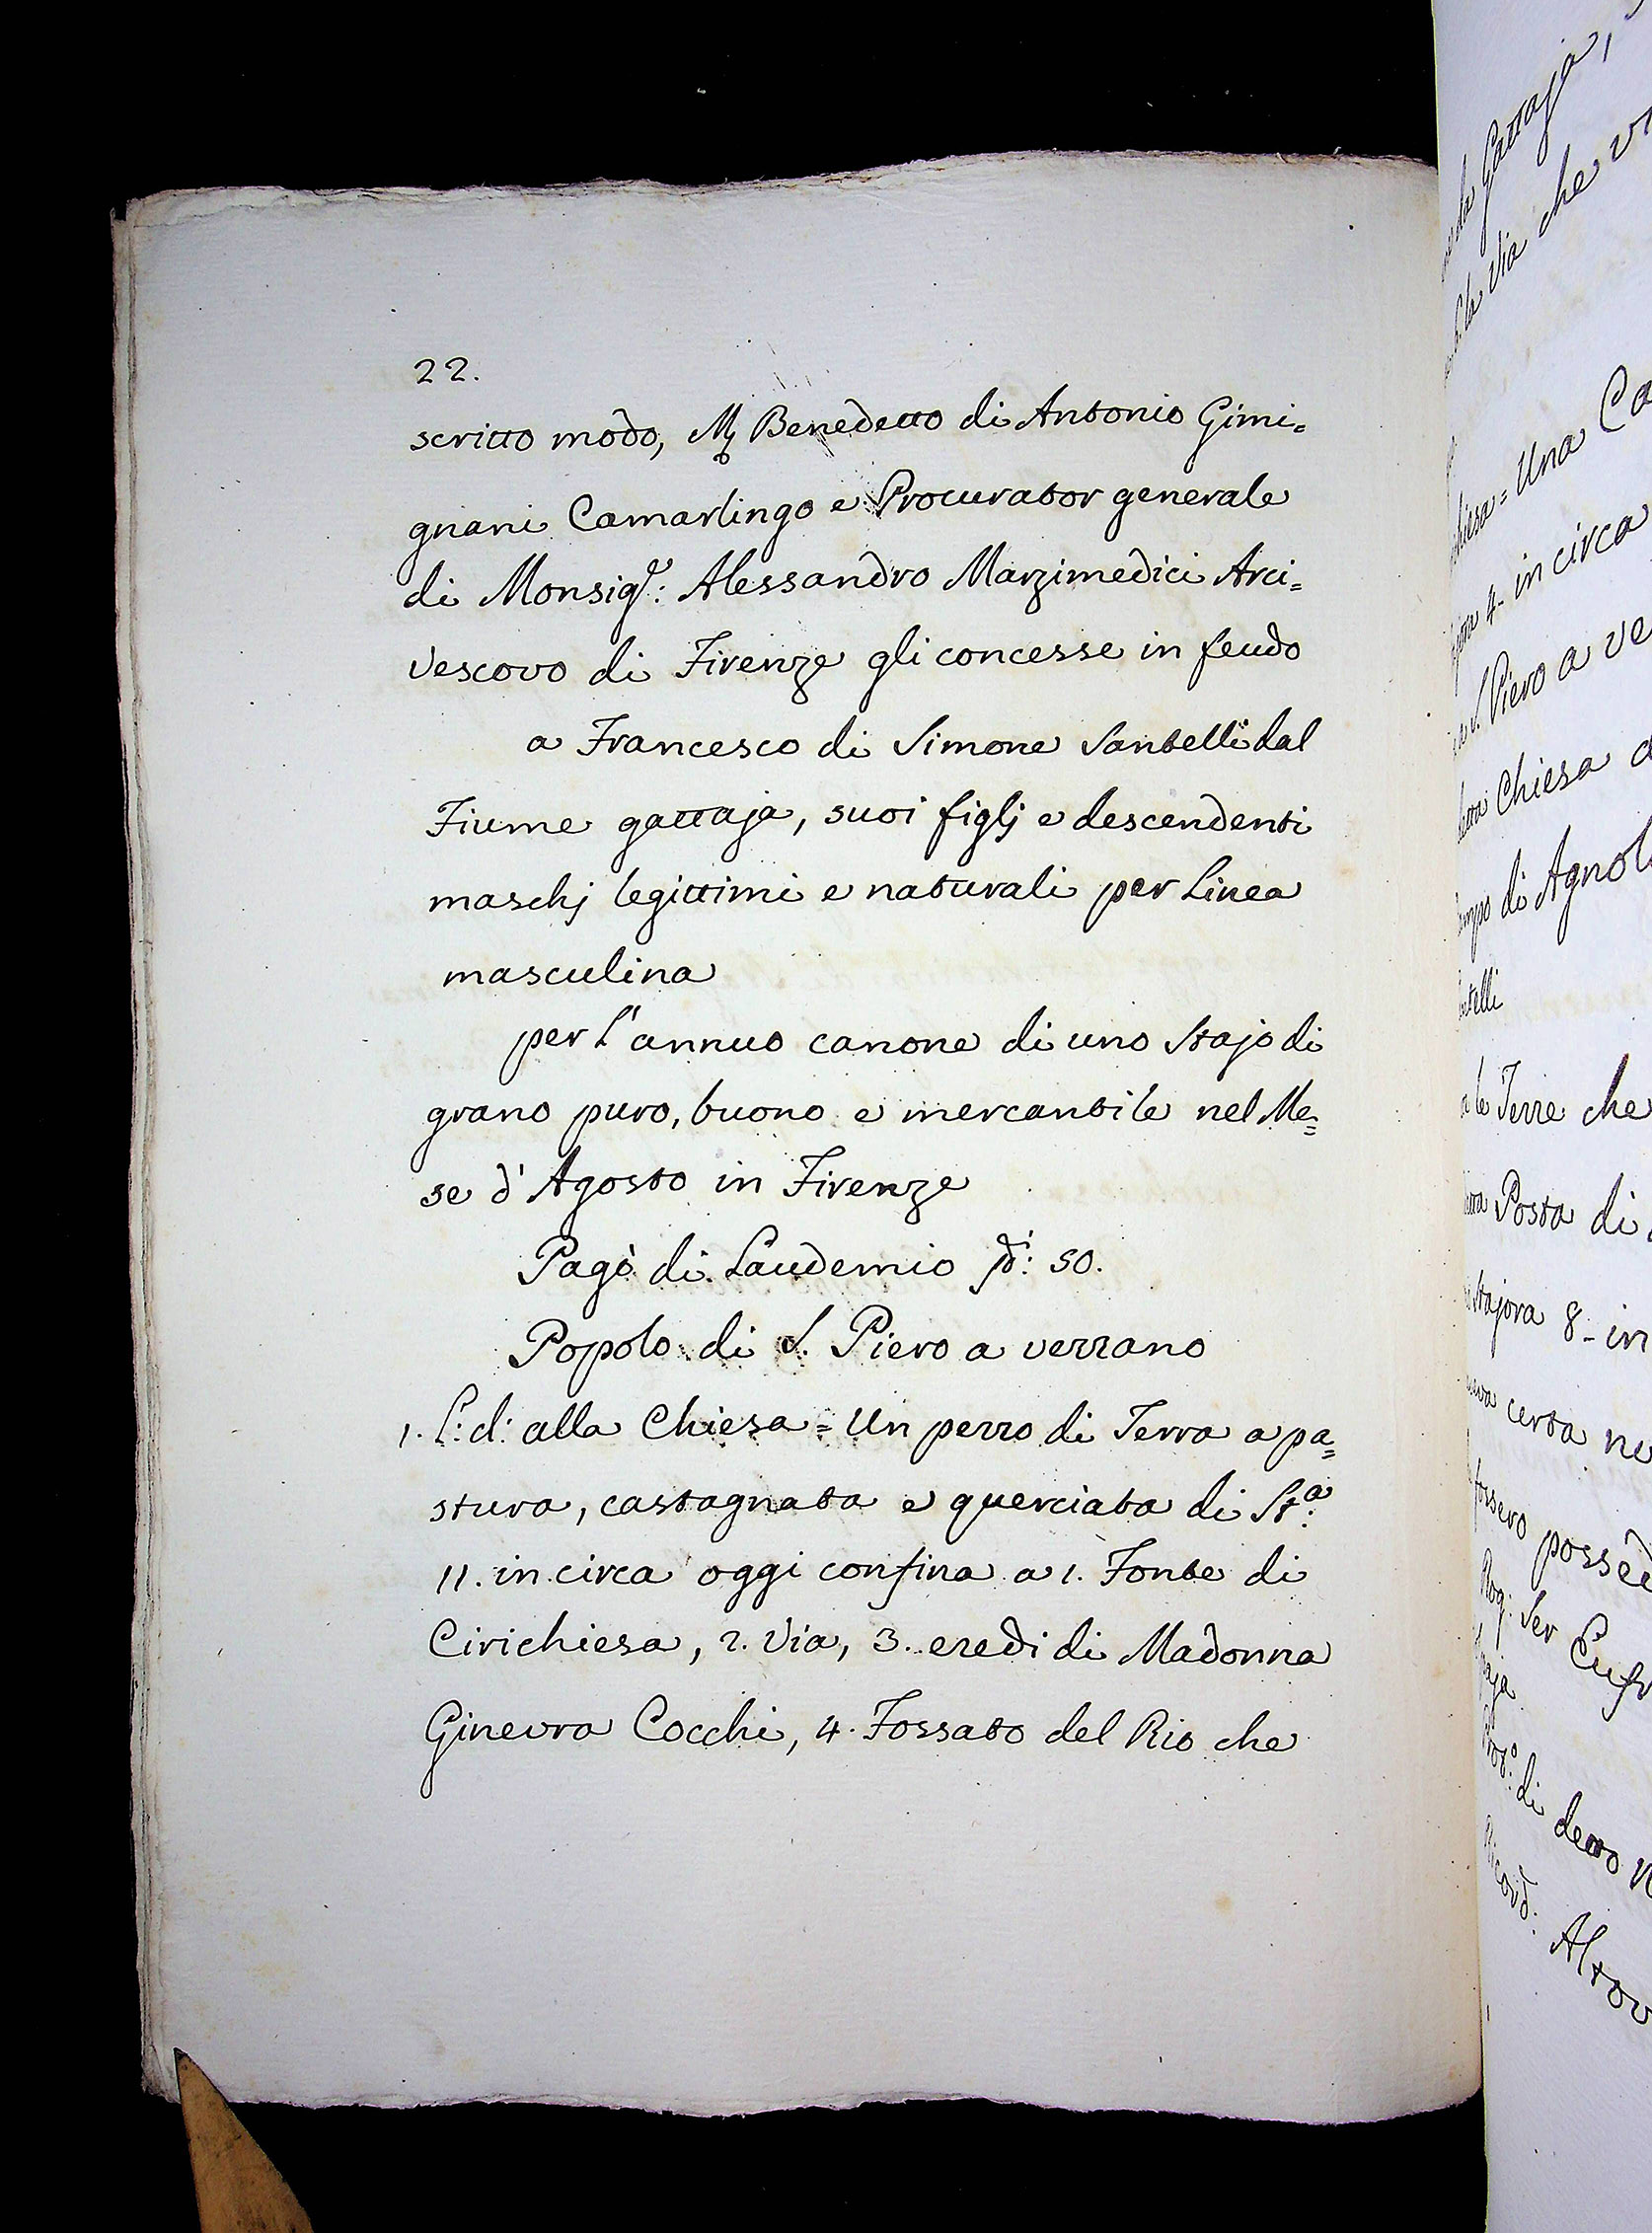 22.
scritto modo, M Benedetto di Antonio Gimi=
gnani Camarlingo e Procurator generale
di Monsigr: Alessandro Marzimedici Arci=
vescovo di Firenze gli concesse in feudo
a Francesco di Simone Santelli dal
Fiume gattaja, suoi figlj e descendenti
maschj legittimi e naturali per Linea
masculina
per l'annuo canone di uno Stajo di
grano puro, buono e mercantile nel Me=
se d'Agosto in Firenze
Pagò di Laudemio : 50.
Popolo di S. Piero a vezzano
1. L: d: alla Chiesa = Un pezzo di Terra a pa=
stura, castagnata e querciata di Sta:
11. in circa oggi confina a 1. Fonte di
Cirichiesa, 2. Via, 3. eredi di Madonna
Ginevra Cocchi, 4. Fossato del Rio che
Gattaja,
Via che
Una
4- in circa
S. Piero a
Chiesa
di
Terre che
Posta di
Stajora 8- in
certa
Ser
di detto